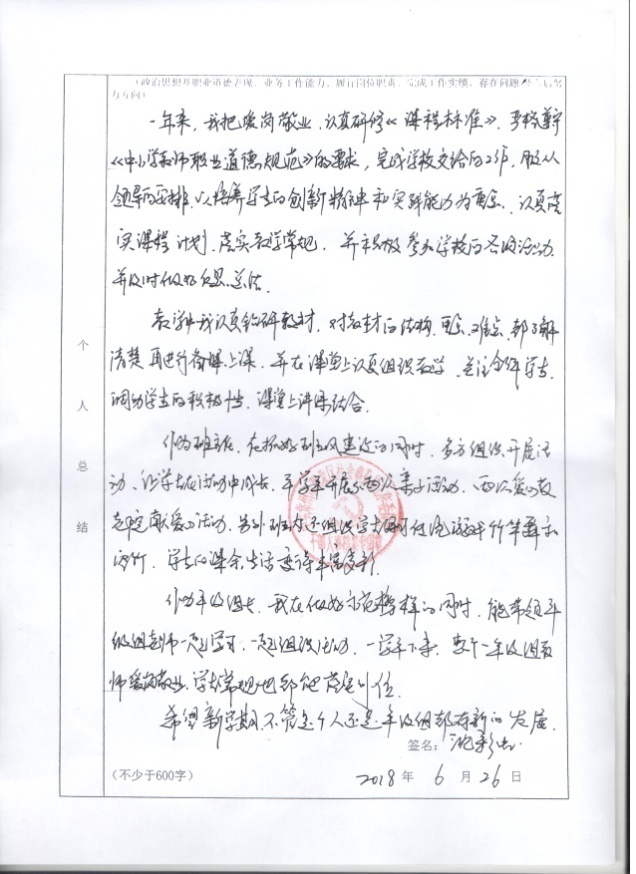 （政治思想及职业道德表现、业务工作能力、履行岗位职责、完成工作实绩、存在问题
力方向）
一年来，我把爱岗敬业，认真研修《课程标准》，严格遵守
《中小学教师职业道德规范》的要求，完成学校交给的工作，服从
领导的安排，以培养学生的创新精神和实践能力为重点，认真落
实课程计划，落实教学常规，并积极参加学校的各项活动，
并及时做好反思、总结。
教学中我认真钻研教材，对教材的结构、重点、难点，都了解
清楚再进行备课上课，并在课堂上认真组织教学，关注全体学生，
调动学生的积极性，课堂上讲练结合。
作为班主任，在抓好班风建设的同时，多方组织开展活
动，让学生在活动中成长，本学年开展了两次亲子活动，两次爱心
献爱心活动，另外班内还组织学生
学生的课余生活变得丰富多彩。
作为年级组长，我在做好示范榜样的同时，能带领年
级组老师一起学习，一起组织活动，一学年下来，整个一年级组教
师爱岗敬业，学生常规也都能落实到位。
希望新学期，不管是个人还是年级组都有新的发展。
签名：
个人总结
（不少于600字）
2018年6月26日